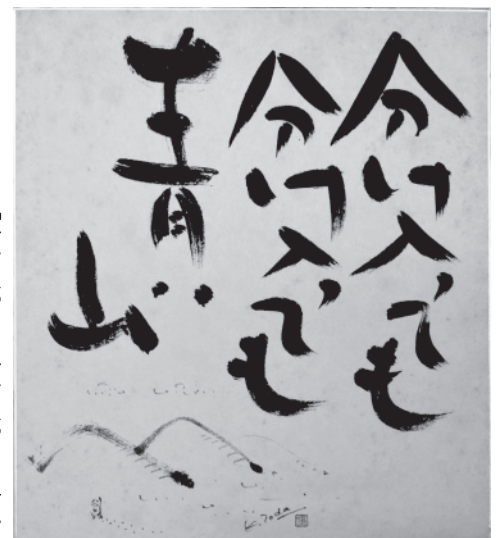 分け入つても
分け入つても
青い山
K. Toda